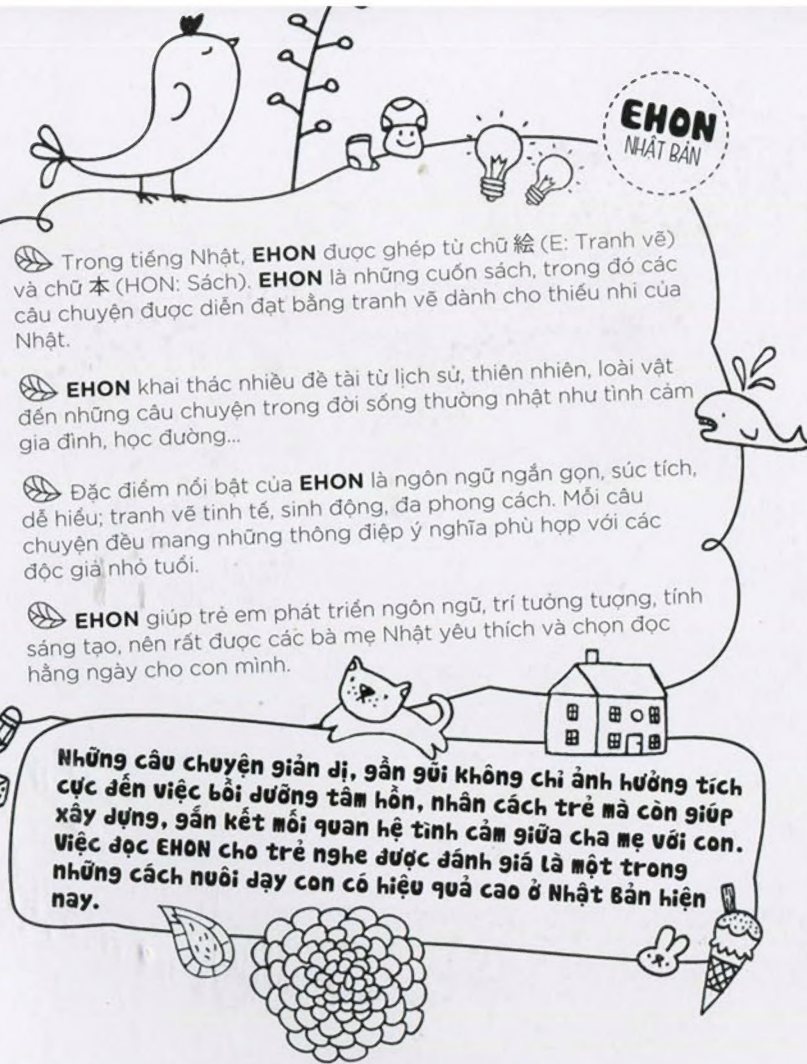 EHON
NHẬT BẢN
Trong tiếng Nhật, EHON được ghép từ chữ 絵 (E: Tranh vẽ)
và chữ 本 (HON: Sách). EHON là những cuốn sách, trong đó các
câu chuyện được diễn đạt bằng tranh vẽ dành cho thiếu nhi của
Nhật.
EHON khai thác nhiều đề tài từ lịch sử, thiên nhiên, loài vật
đến những câu chuyện trong đời sống thường nhật như tình cảm
gia đình, học đường...
Đặc điểm nổi bật của EHON là ngôn ngữ ngắn gọn, súc tích,
dễ hiểu; tranh vẽ tinh tế, sinh động, đa phong cách. Mỗi câu
chuyện đều mang những thông điệp ý nghĩa phù hợp với các
độc giả nhỏ tuổi.
EHON giúp trẻ em phát triển ngôn ngữ, trí tưởng tượng, tính
sáng tạo, nên rất được các bà mẹ Nhật yêu thích và chọn đọc
hằng ngày cho con mình.
Những câu chuyện giản dị, gần gũi không chỉ ảnh hưởng tích
cực đến việc bồi dưỡng tâm hồn, nhân cách trẻ mà còn giúp
xây dựng, gắn kết mối quan hệ tình cảm giữa cha mẹ với con.
Việc đọc EHON cho trẻ nghe được đánh giá là một trong
những cách nuôi dạy con có hiệu quả cao ở Nhật Bản hiện
nay.